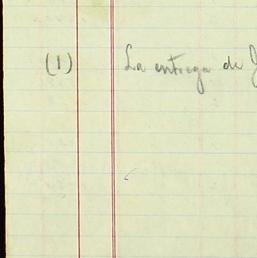 (1) La entrega de